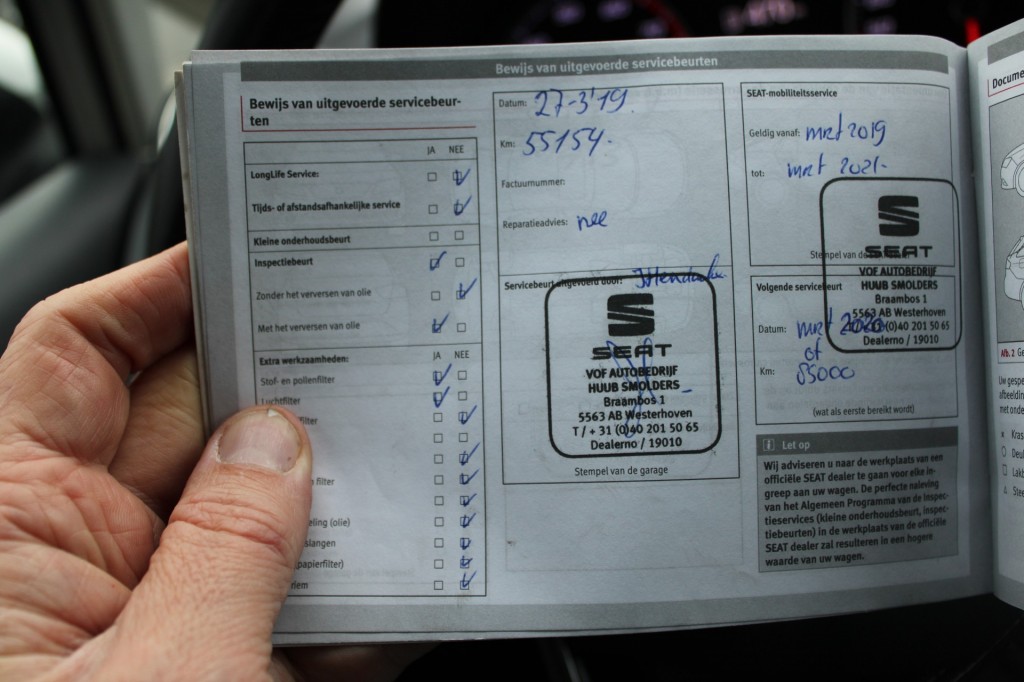 Bewijs van uitgevoerde servicebeurten
Bewijs van uitgevoerde servicebeur-
ten
JA NEE
LongLife Service:
Tijds- of afstandsafhankelijke service
Kleine onderhoudsbeurt
Inspectiebeurt
Zonder het verversen van olie
Met het verversen van olie
Extra werkzaamheden: JA NEE
Stof- en pollenfilter
Luchtfilter
filter
eling (olie)
slangen
papierfilter)
riem
Datum: 27-3'19.
Km: 55154.
Factuurnummer:
Reparatieadvies: nee
Servicebeurt uitgevoerd door:
SEAT
VOF AUTOBEDRIJF
HUUB SMOLDERS
Braambos 1
5563 AB Westerhoven
T / + 31 (0)40 201 50 65
Dealerno / 19010
Stempel van de garage
SEAT-mobiliteitsservice
Geldig vanaf: mrt 2019
tot: mrt 2021.
Stempel van de
SEAT
VOF AUTOBEDRIJF
HUUB SMOLDERS
Braambos 1
5563 AB Westerhoven
T / + 31 (0)40 201 50 65
Dealerno / 19010
Volgende servicebeurt
Datum: mrt 2020
of
Km: 85000
(wat als eerste bereikt wordt)
Let op
Wij adviseren u naar de werkplaats van een
officiële SEAT dealer te gaan voor elke in-
greep aan uw wagen. De perfecte naleving
van het Algemeen Programma van de inspec-
tieservices (kleine onderhoudsbeurt, inspec-
tiebeurten) in de werkplaats van de officiële
SEAT dealer zal resulteren in een hogere
waarde van uw wagen.
Docume
Afb. 2 Ge
Uw gespe
afbeelding
met onder
x Kras
Deu
Lakb
Stee